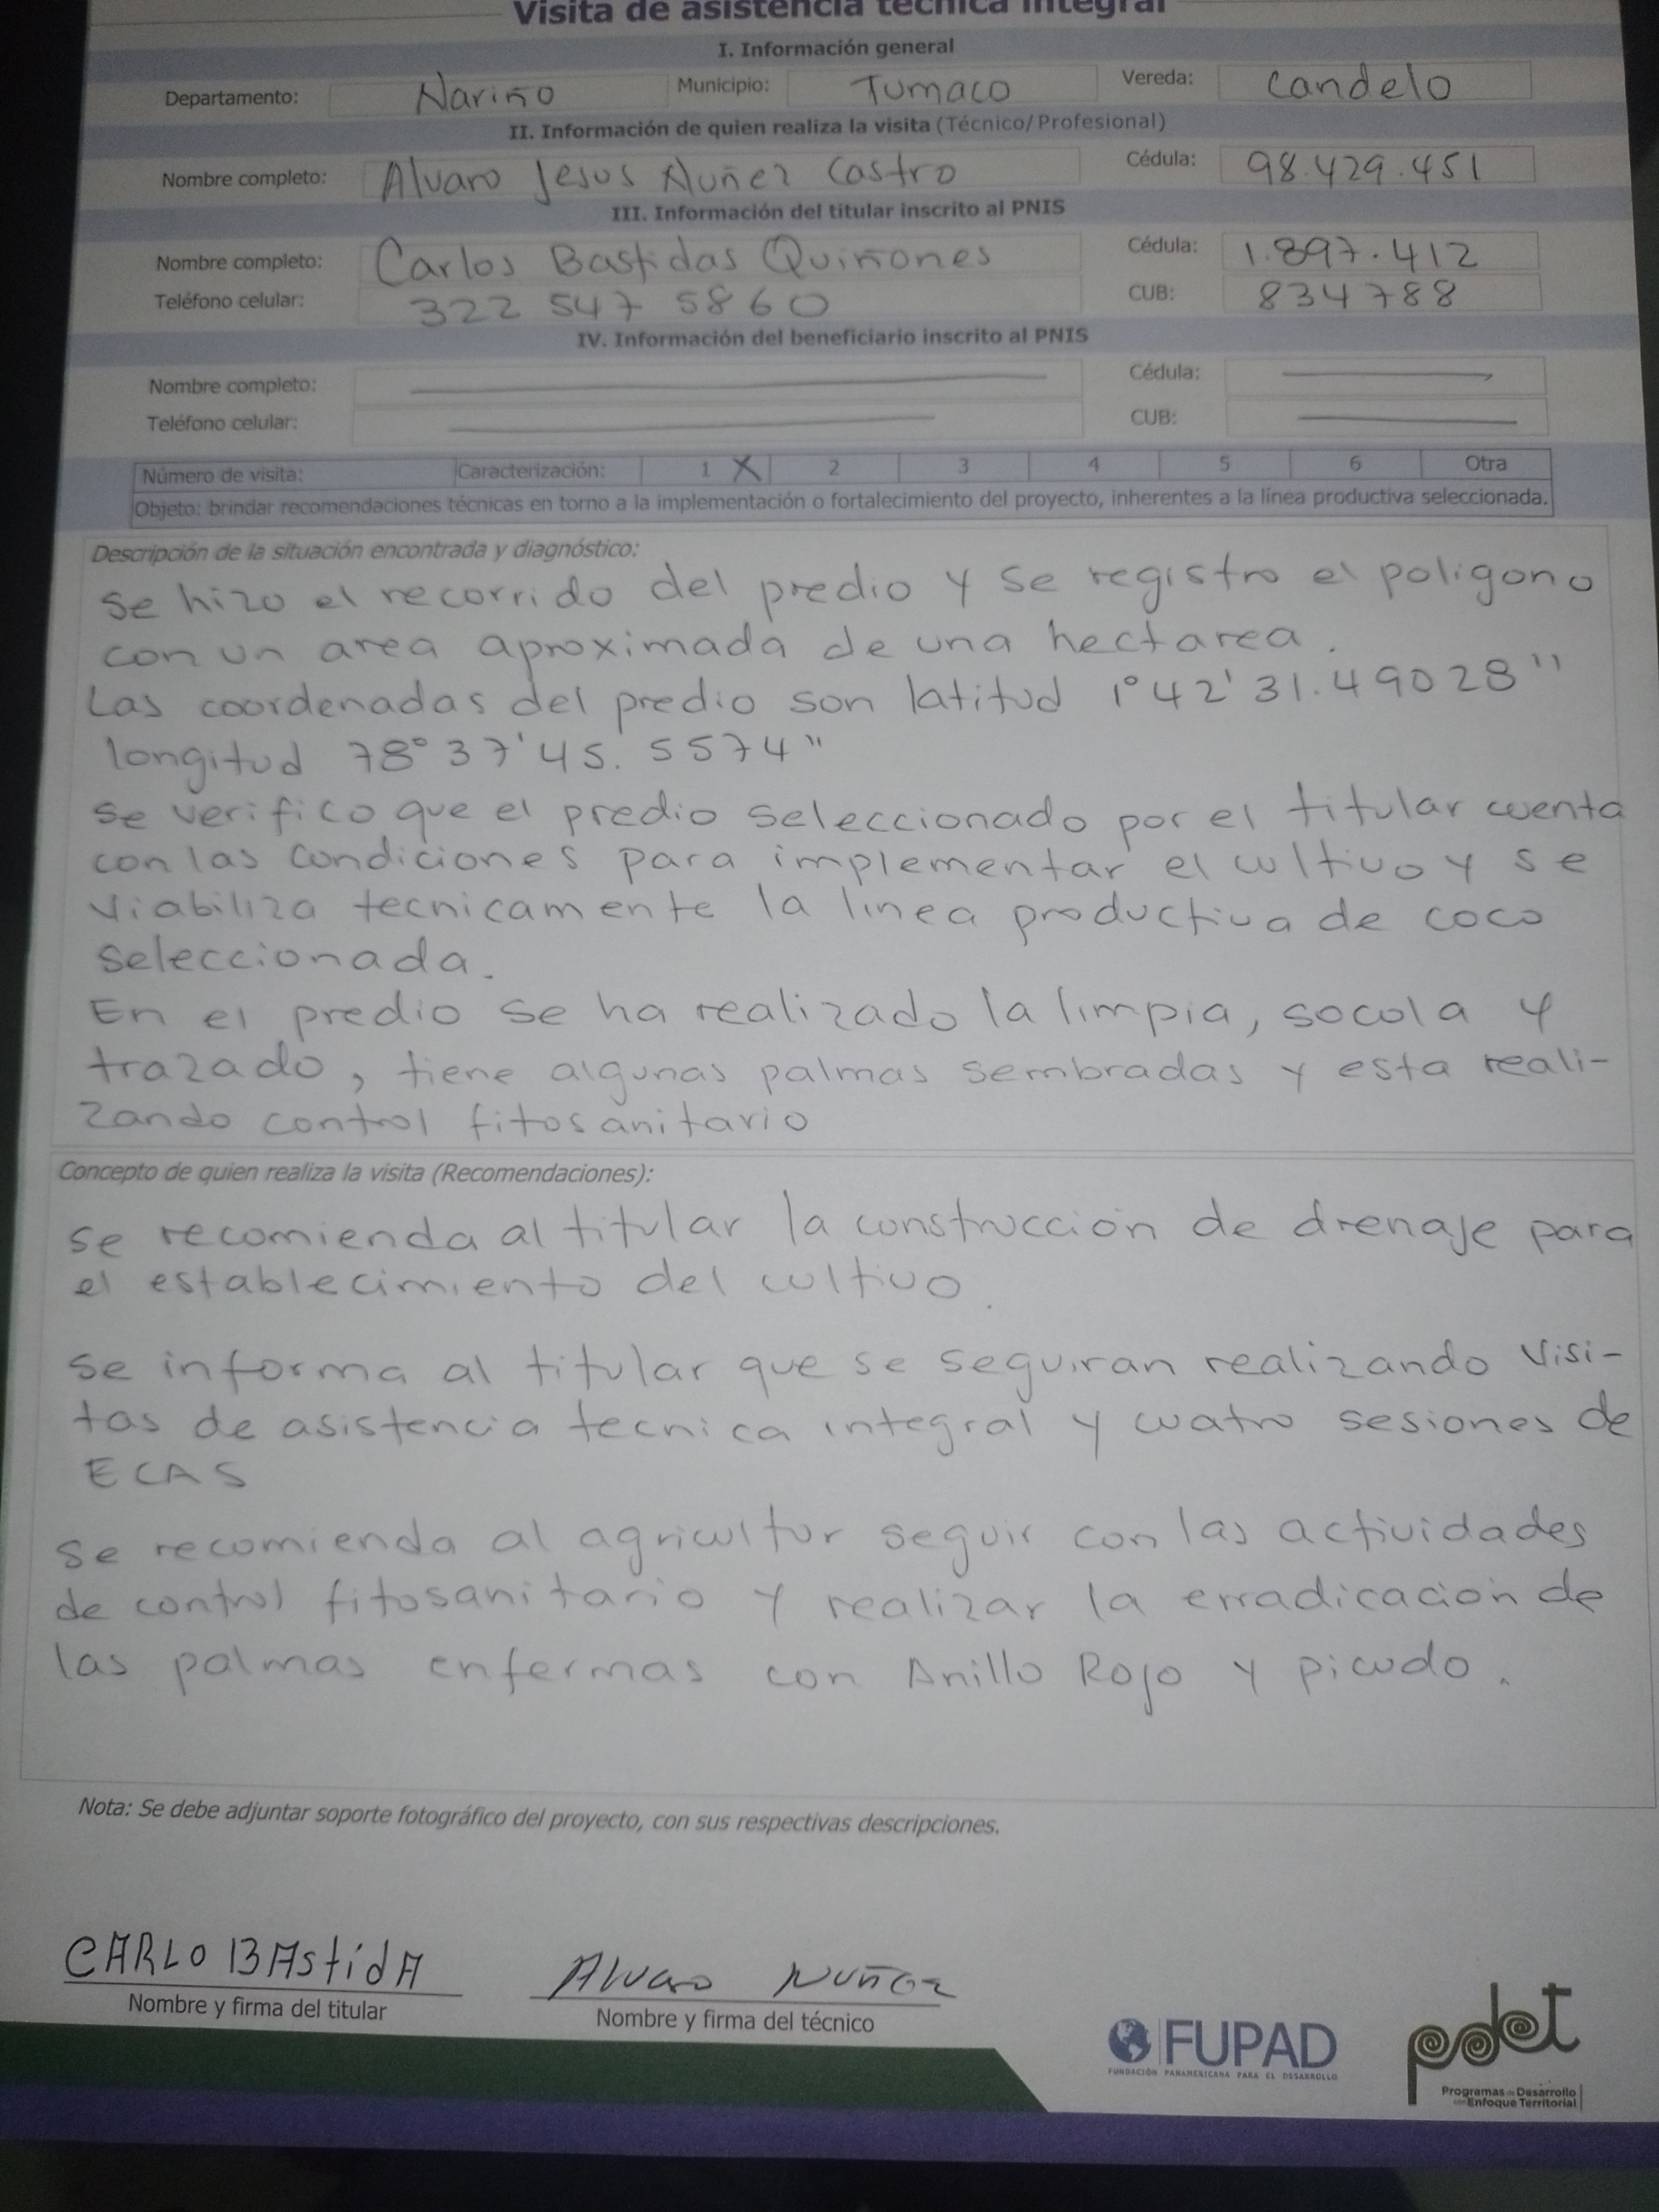 Visita de asistencia técnica integral
I. Información general
Departamento: Nariño Municipio: Tumaco Vereda: Candelo
II. Información de quien realiza la visita (Técnico/Profesional)
Nombre completo: Alvaro Jesus Nuñez Castro Cédula: 98.429.451
III. Información del titular inscrito al PNIS
Nombre completo: Carlos Bastidas Quiñones Cédula: 1.897.412
Teléfono celular: 322 547 5860 CUB: 834788
IV. Información del beneficiario inscrito al PNIS
Nombre completo: Cédula:
Teléfono celular: CUB:
Número de visita: Caracterización: 1 X 2 3 4 5 6 Otra
Objeto: brindar recomendaciones técnicas en torno a la implementación o fortalecimiento del proyecto, inherentes a la línea productiva seleccionada.
Descripción de la situación encontrada y diagnóstico:
se hizo el recorrido del predio y se registro el poligono
con un area aproximada de una hectarea.
Las coordenadas del predio son latitud 1°42'31.49028"
longitud 78°37'45.5574"
se verifico que el predio seleccionado por el titular cuenta
con las condiciones para implementar el cultivo y se
viabiliza tecnicamente la linea productiva de coco
seleccionada.
En el predio se ha realizado la limpia, socola y
trazado, tiene algunas palmas sembradas y esta reali-
zando control fitosanitario
Concepto de quien realiza la visita (Recomendaciones):
se recomienda al titular la construcción de drenaje para
el establecimiento del cultivo.
se informa al titular que se seguiran realizando visi-
tas de asistencia tecnica integral y cuatro sesiones de
ECAS
se recomienda al agricultur seguir con las actividades
de control fitosanitario y realizar la erradicación de
las palmas enfermas con Anillo Rojo y picudo.
Nota: Se debe adjuntar soporte fotográfico del proyecto, con sus respectivas descripciones.
CARLO BAStidA Alvaro Nuñez
Nombre y firma del titular Nombre y firma del técnico
FUPAD
FUNDACIÓN PANAMERICANA PARA EL DESARROLLO
pdet
Programas de Desarrollo
con Enfoque Territorial